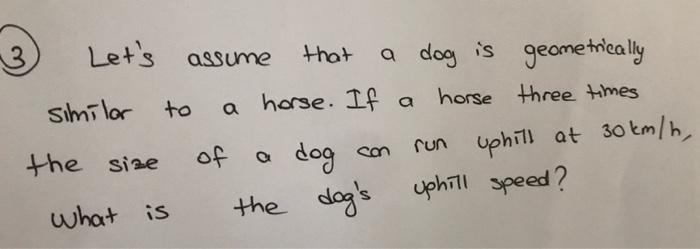 3 Let's assume that a dog is geometrically
similar to a horse. If a horse three times
the size of a dog can run uphill at 30 km/h,
what is the dog's uphill speed?